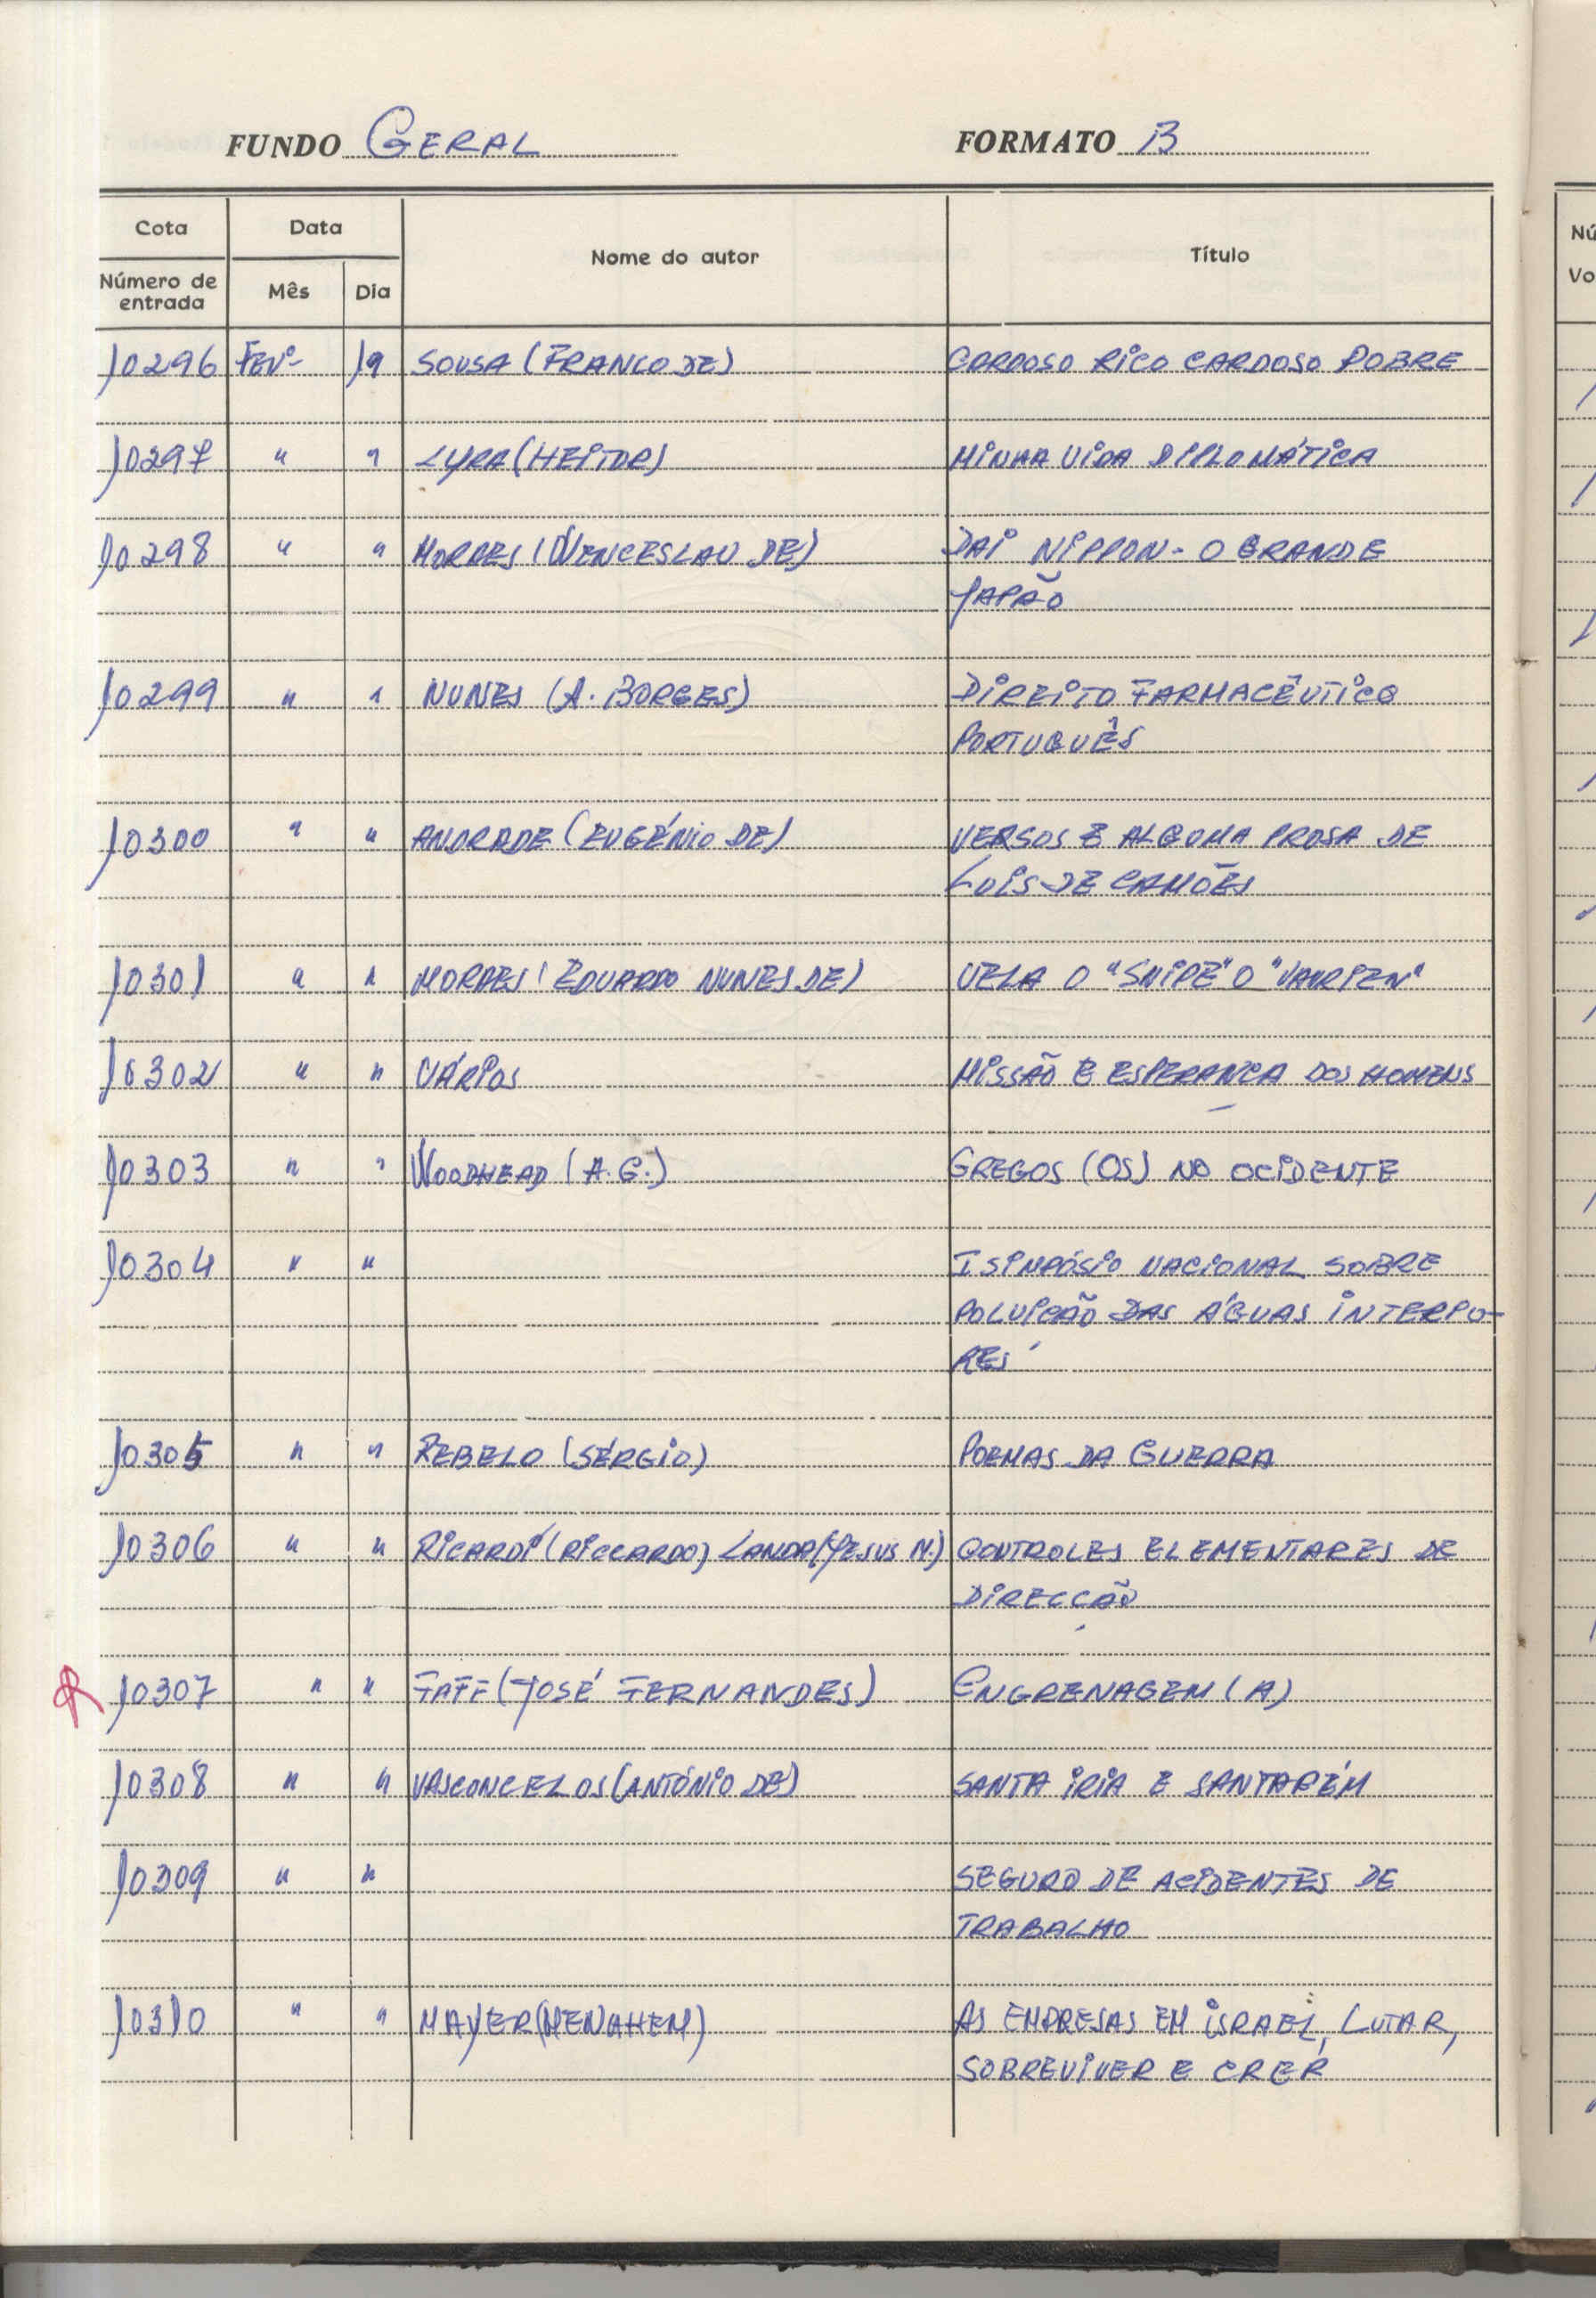 FUNDO GERAL FORMATO B
Cota Data Nome do autor Título
Número de entrada Mês Dia
10296 FEVº 19 SOUSA (FRANCO DE) CARDOSO RICO CARDOSO POBRE
10297 " " LYRA (HEITOR) MINHA VIDA DIPLOMÁTICA
10298 " " MORAES (WENCESLAU DE) DAI NIPPON - O GRANDE
JAPÃO
10299 " " NUNES (A. BORGES) DIREITO FARMACÊUTICO
PORTUGUÊS
10300 " " ANDRADE (EUGÉNIO DE) VERSOS E ALGUMA PROSA DE
LUÍS DE CAMÕES
10301 " " MORAES (EDUARDO NUNES DE) VELA O "SNIPE" O "VAURIEN"
10302 " " VÁRIOS MISSÃO E ESPERANÇA DOS HOMENS
10303 " " WOODHEAD (A. G.) GREGOS (OS) NO OCIDENTE
10304 " " I SIMPÓSIO NACIONAL SOBRE
POLUIÇÃO DAS ÁGUAS INTERIO-
RES
10305 " " REBELO (SÉRGIO) POEMAS DA GUERRA
10306 " " RICARDI (RICCARDO) LANDA (JESUS N.) CONTROLES ELEMENTARES DE
DIRECÇÃO
10307 " " FAFE (JOSÉ FERNANDES) ENGRENAGEM (A)
10308 " " VASCONCELOS (ANTÓNIO DE) SANTA IRIA E SANTARÉM
10309 " " SEGURO DE ACIDENTES DE
TRABALHO
10310 " " MAYER (MENAHEM) AS EMPRESAS EM ISRAEL, LUTAR,
SOBREVIVER E CRER
Nú
Vo